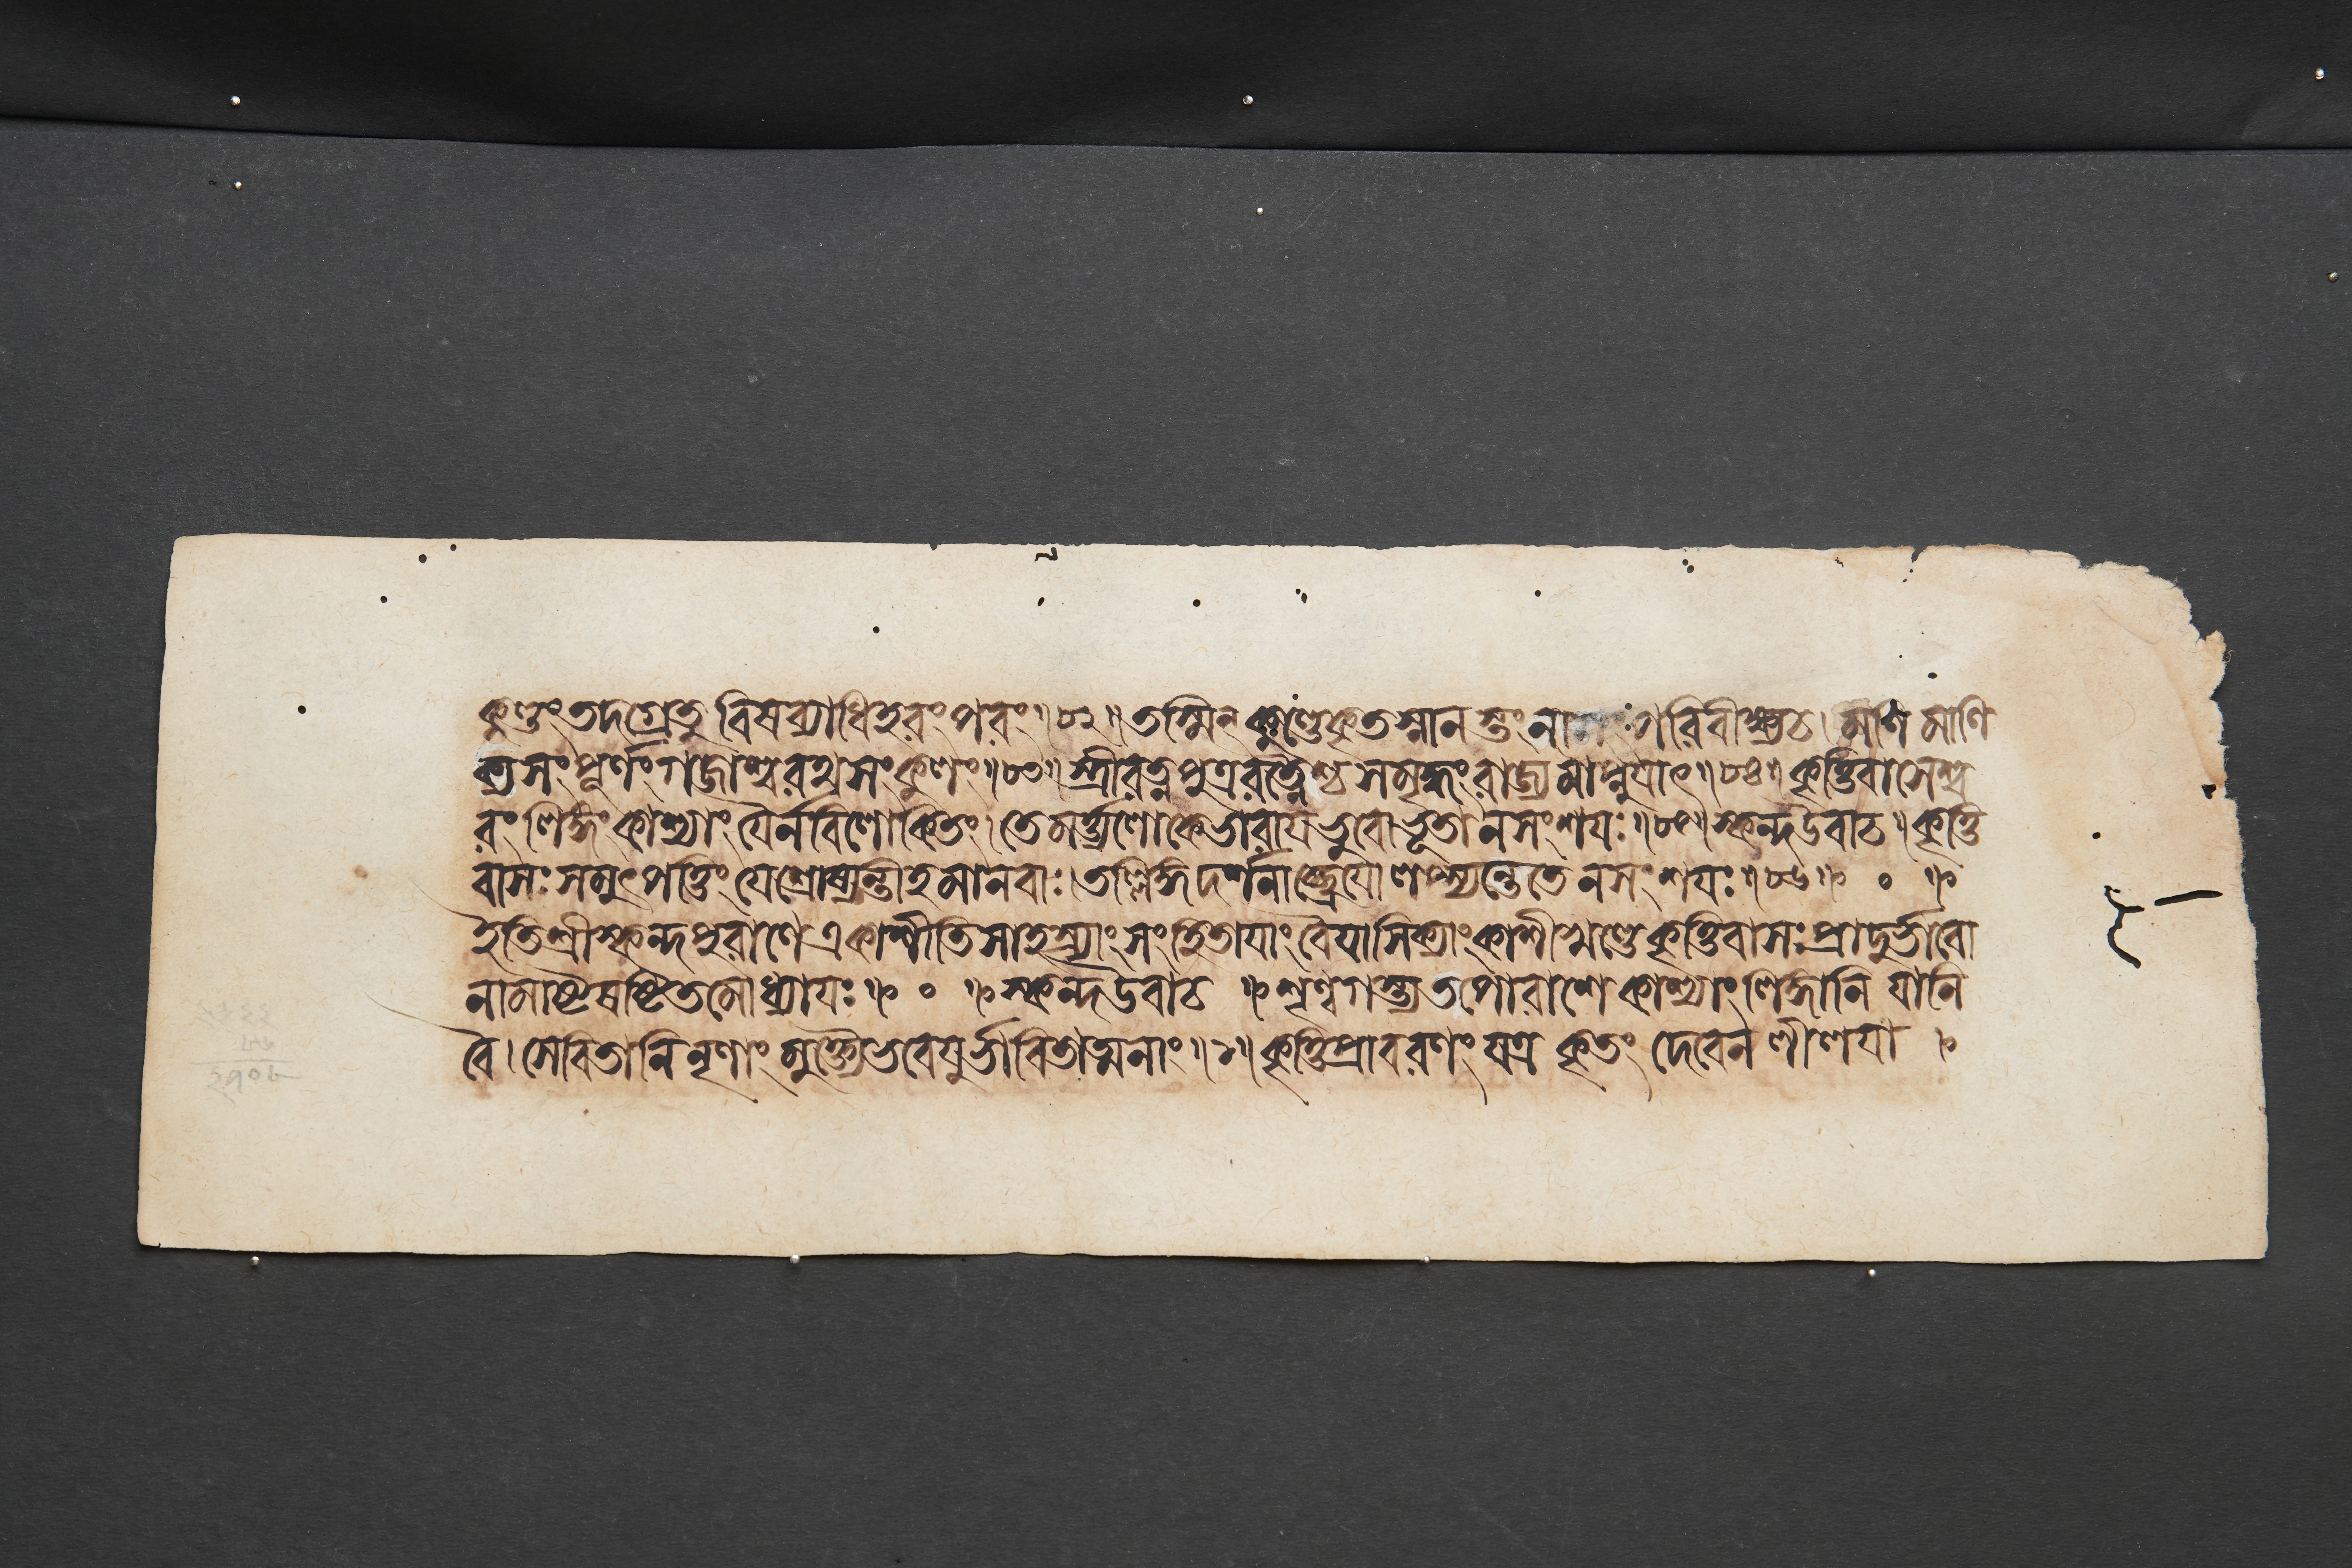 কুণ্ডং তদগ্রে তু বিষব্যাধিহরং পরং ॥ ৮২ ॥ তস্মিন্ কুণ্ডে কৃতস্নানস্তং পরিবীক্ষ্য চ । মণিমাণি
ক্যসংপূর্ণং গজাশ্বরথসংকুলং ॥ ৮৩ ॥ স্ত্রীরত্নপুত্ররত্নৈশ্চ সমৃদ্ধং রাজ্যমাপ্নুযাৎ ॥ ৮৪ ॥ কৃত্তিবাসেশ্ব
রং লিঙ্গং কাশ্যাং যৈর্ন বিলোকিতং । তে মর্ত্ত্যলোকে ভারায ভুবো ভূতা ন সংশযঃ ॥ ৮৫ ॥ স্কন্দ উবাচ ॥ কৃত্তি
বাসঃ সমুৎপত্তিং যে শ্রোষ্যন্তীহ মানবাঃ । তল্লিঙ্গদর্শনাচ্ছ্রেযো লপ্স্যন্তে তে ন সংশযঃ ॥ ৮৬ ॥ ० ॥
ইতি শ্রীস্কন্দপুরাণে একাশীতিসাহস্র্যাং সংহিতাযাং বৈযাসিক্যাং কাশীখণ্ডে কৃত্তিবাসঃপ্রাদুর্ভাবো
নামাষ্টষষ্টিতমোধ্যাযঃ ॥ ० ॥ স্কন্দ উবাচ ॥ শৃণ্বগস্ত্য তপোরাশে কাশ্যাং লিঙ্গানি যানি
বৈ । সেবিতানি নৃণাং মুক্ত্যৈ ভবেযুর্ভাবিতাত্মনাং ॥ ১ ॥ কৃত্তিপ্রাবরণং যত্র কৃতং দেবেন লীলযা ।